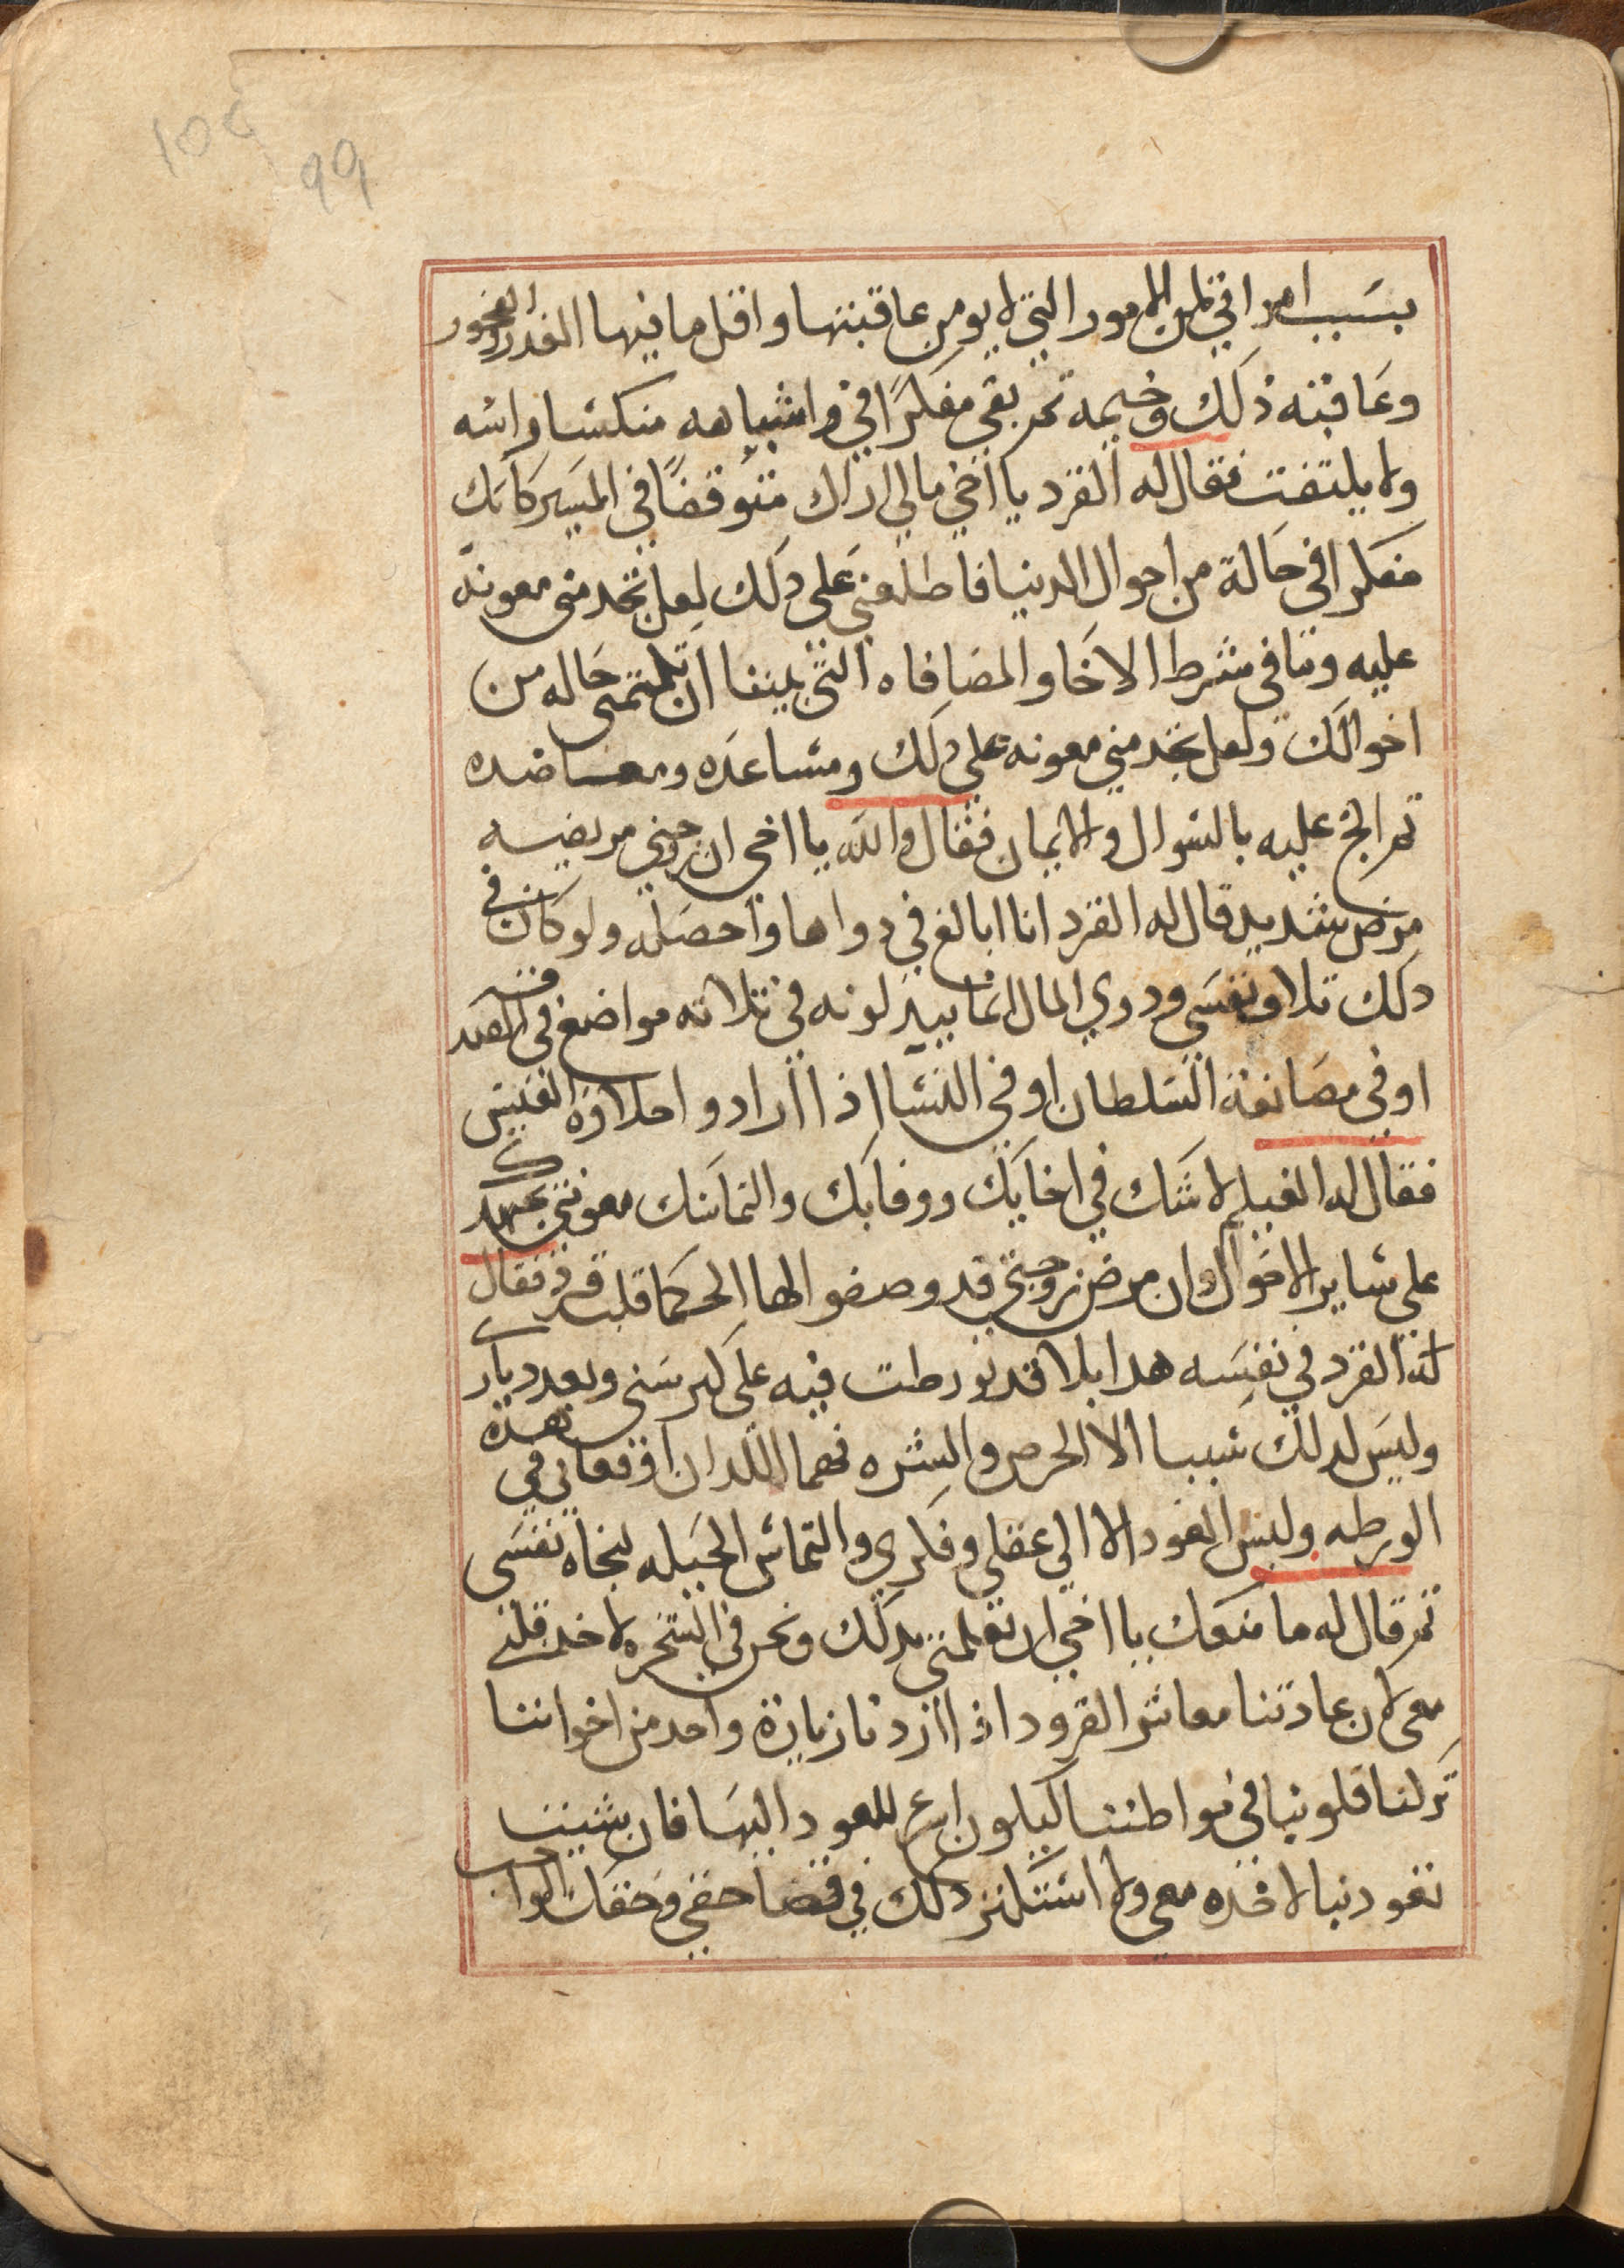 105
99
بسبب امراتي لمن الامور التي لا يومن عاقبتها واقل ما فيها الغدر والفجور
وعاقبته ذلك وخيمه ثم بقي مفكرا في واشباهه منكسا راسه
ولا يلتفت فقال له القرد يا اخي مالي اراك متوقفا في المسير كانك
مفكرا في حالة من احوال الدنيا فاطلعني على ذلك لعل تجد مني معونه
عليه وتنافي شرط الاخا والمصافاه التي بيننا ان تكتمني حاله من
احوالك ولعل تجد مني معونه على ذلك ومساعده ومعاضده
ثم الح عليه بالسوال والايمان فقال والله يا اخي ان زوجتي مريضه
مرض شديد قال له القرد انا ابالغ في دواها واحصله ولو كان في
ذلك تلاف نفسي وذوي المال انما يبذلونه في ثلاثه مواضع في الصدقه
او في مصانعة السلطان او في النسا اذا ارادوا حلاوة العيش
فقال له الغيلم لا شك في اخايك ووفايك والتماسك معونتي بجهدك
على ساير الاحوال وان مرض زوجتي قد وصفوا لها الحكما قلب قرد فقال
له القرد في نفسه هدا بلا قد تورطت فيه على كبر سني وبعد دياري
وليس لدلك سببا الا الحرص والشره فهما اللدان اوقعاني في هذه
الورطه وليس العود الا الي عقلي وفكري والتماس الحيله لنجاه نفسي
ثم قال له ما منعك يا اخي ان تعلمني بدلك ونحن في الشجره لاخد قلبي
معي لان عادتنا معاشر القرود اذا اردنا زيارة واحد من اخواننا
تركنا قلوبنا في مواطننا ليكون اسرع للعود اليها فان شيت
نعود بنا لاخده معي ولا استكثر ذلك في قضا حقي وحقك الواجب